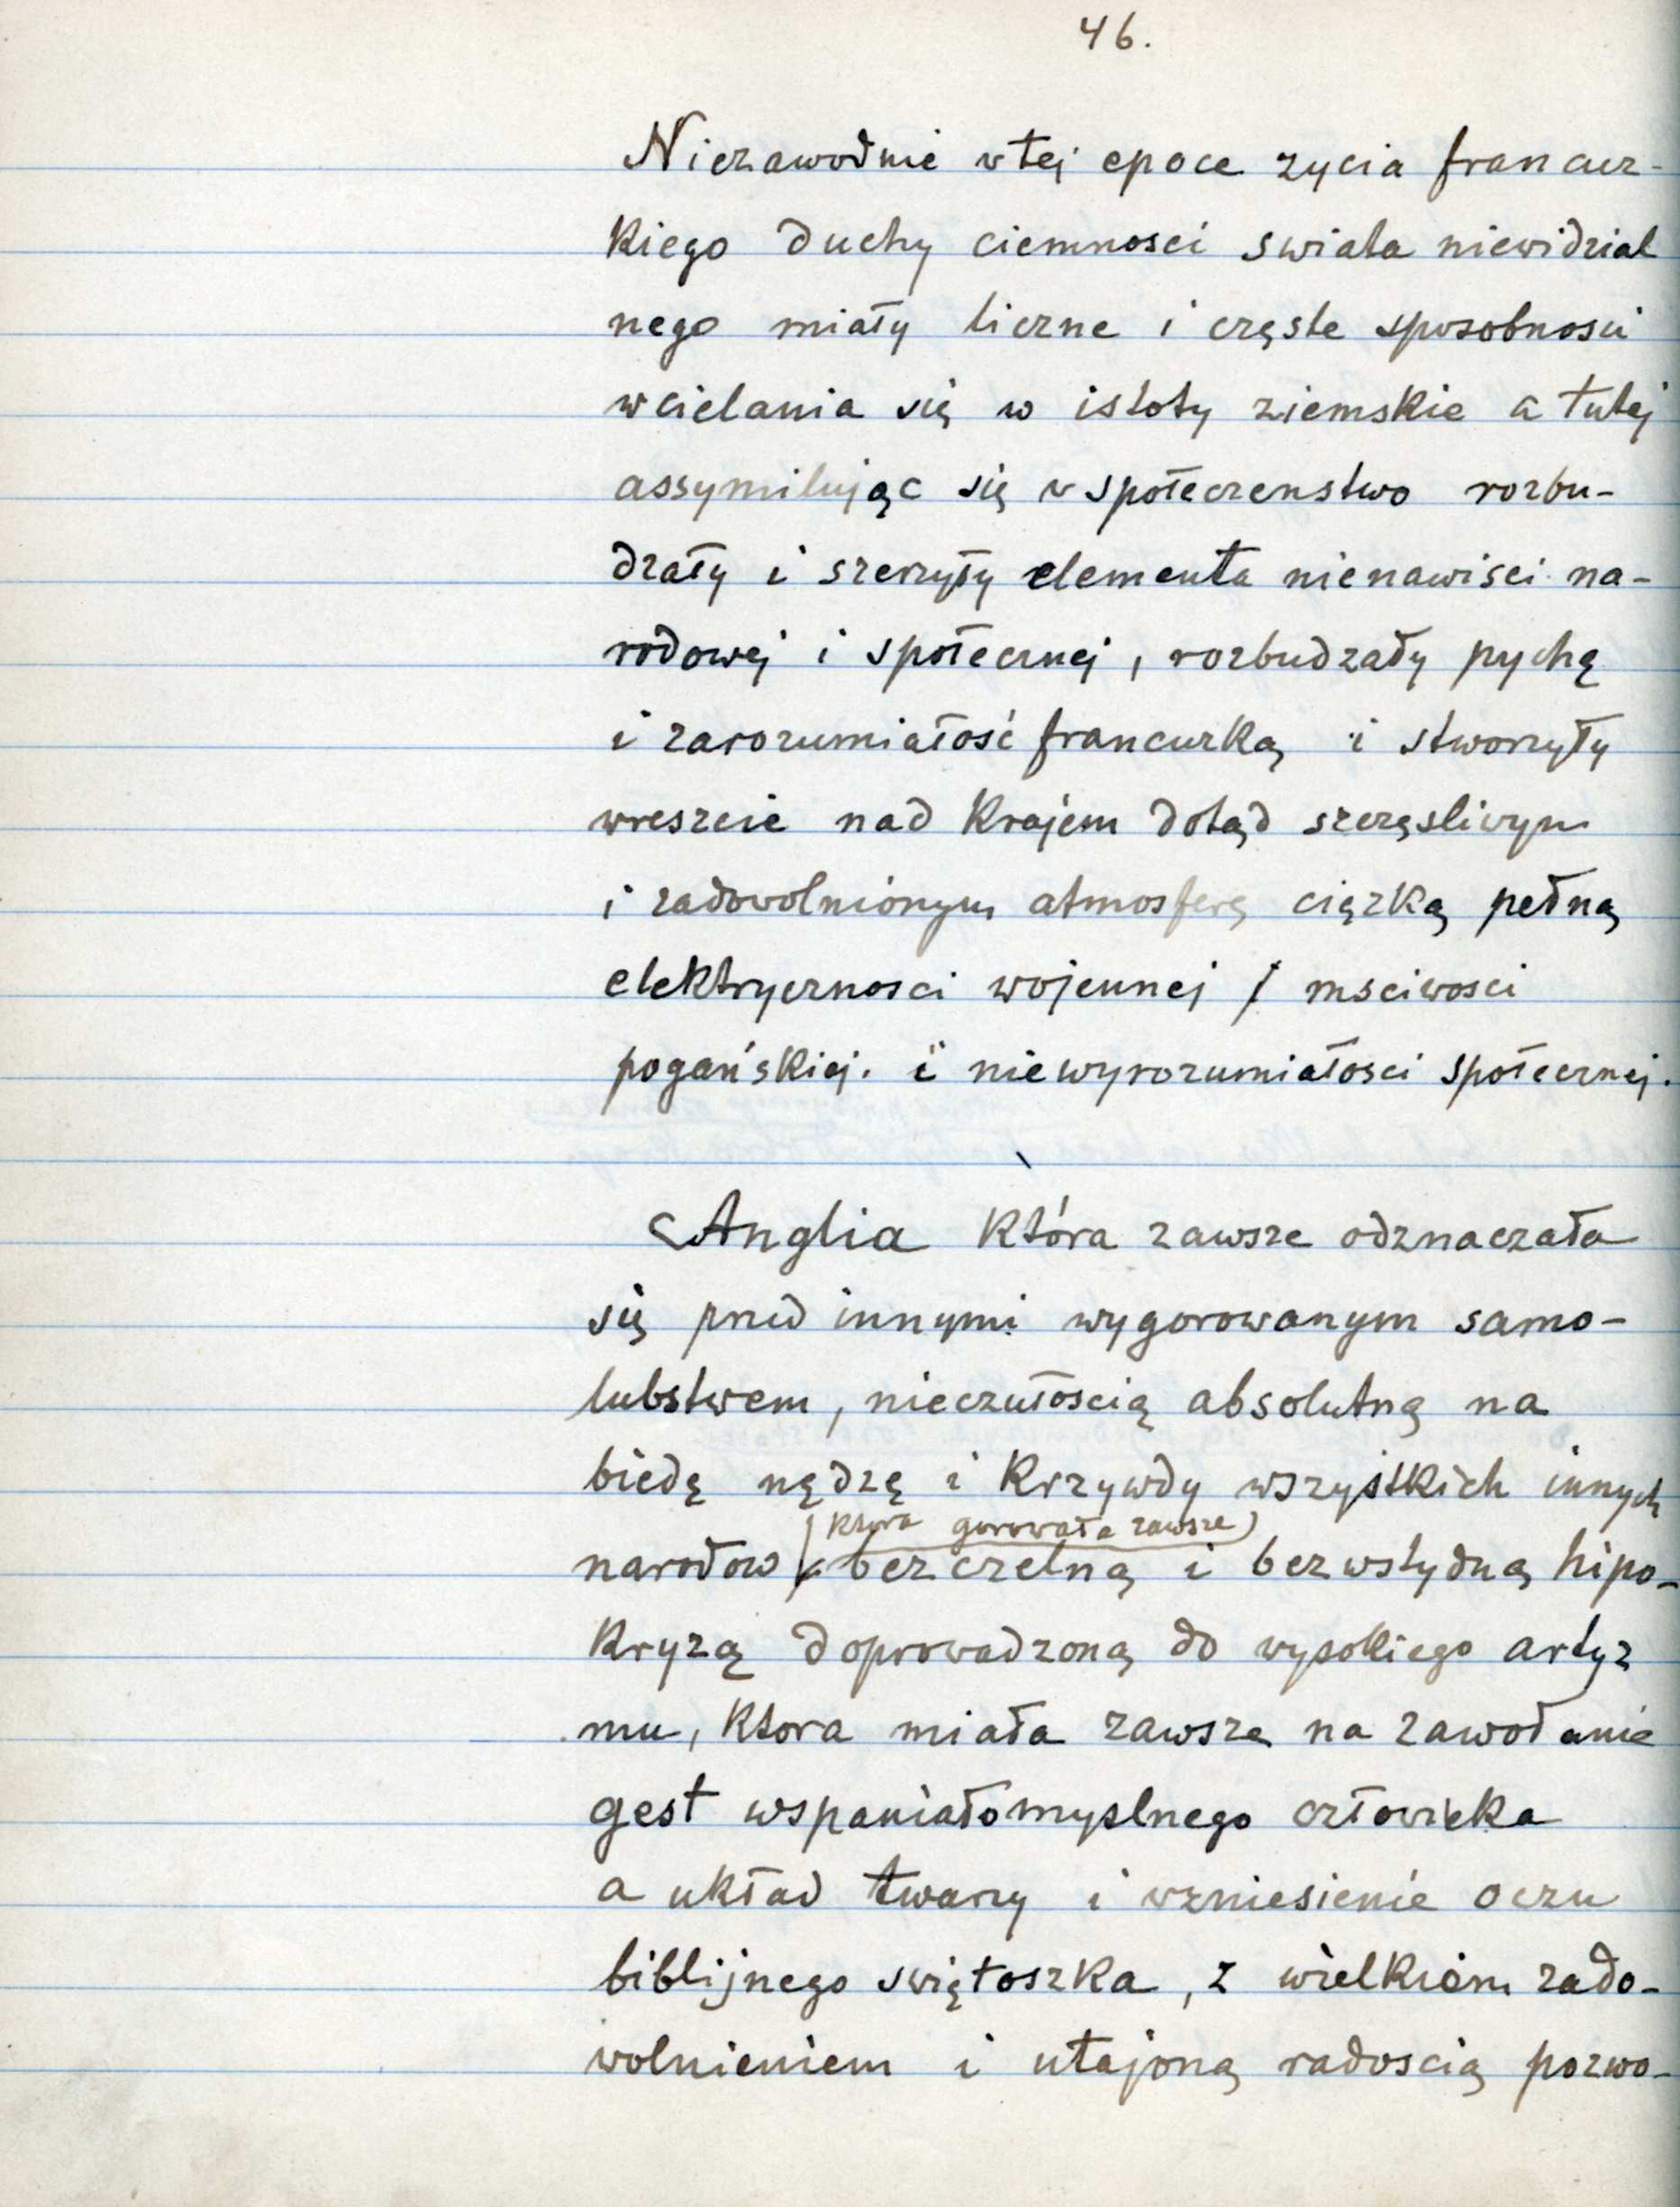 46.
Niezawodnie w tej epoce zycia francuz-
kiego duchy ciemnosci swiata niewidzial
nego miały liczne i częste sposobnosci
wcielania się w istoty ziemskie a tutej
assymilując się w społeczenstwo rozbu-
dzały i szerzyły elementa nienawisci na-
rodowej i społecznej, rozbudzały pychę
i zarozumiałość francuzką i stworzyły
wreszcie nad krajem dotąd szczęsliwym
i zadowolnionym atmosferę cięzką pełną
elektrycznosci wojennej / msciwosci
pogańskiej. i niewyrozumiałosci społecznej.
Anglia która zawsze odznaczała
się przed innymi wygorowanym samo-
lubstwem, nieczułoscią absolutną na
biedę nędzę i krzywdy wszystkich innych
(ktora gorowała zawsze)
narodow bezczelną i bezwstydną hipo-
kryzą doprowadzoną do wysokiego artyz
mu, ktora miała zawsze na zawołanie
gest wspaniałomyslnego człowieka
a układ twarzy i wzniesienie oczu
biblijnego swiętoszka, z wielkiem zado-
wolnieniem i utajoną radoscią pozwo-